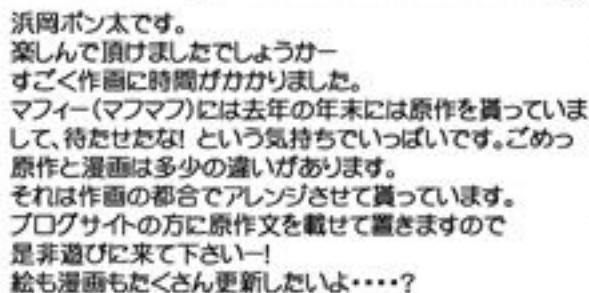 浜岡ポン太です。
楽しんで頂けましたでしょうかー
すごく作画に時間がかかりました。
マフィー(マフマフ)には去年の年末には原作を貰っていま
して、待たせたな! という気持ちでいっぱいです。ごめっ
原作と漫画は多少の違いがあります。
それは作画の都合でアレンジさせて貰っています。
ブログサイトの方に原作文を載せて置きますので
是非遊びに来て下さいー!
絵も漫画もたくさん更新したいよ・・・・?